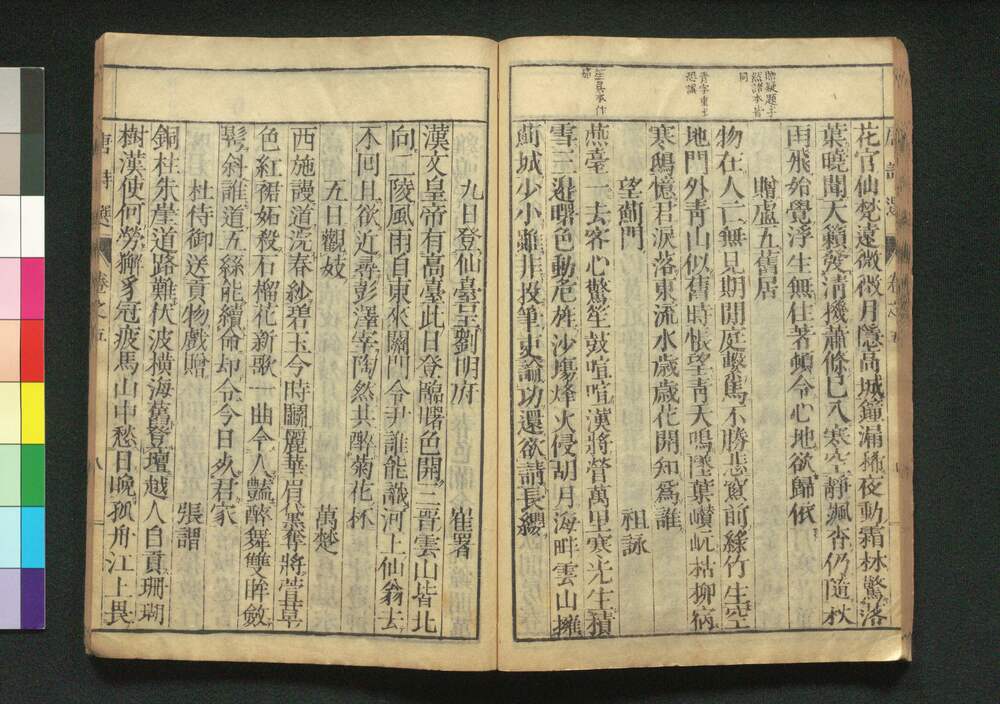 贈疑題字
然諸本皆
同
青字重出
恐誤
笙異本作
花宮仙梵遠微微月隱高城鐘漏稀夜動霜林驚落
葉曉聞天籟發清機蕭條已入寒空靜颯沓仍隨秋
雨飛始覺浮生無住著頓令心地欲歸依
贈盧五舊居
物在人亡無見期閒庭繫馬不勝悲窓前綠竹生空
地門外青山似舊時悵望青天鳴墜葉巑岏枯柳宿
寒鴟憶君淚落東流水歲歲花開知爲誰
望薊門 祖詠
燕臺一去客心驚笙鼓喧喧漢將營萬里寒光生積
雪三邊曙色動危旌沙塲烽火侵胡月海畔雲山擁
薊城少小雖非投筆吏論功還欲請長纓
九日登仙臺呈劉明府 崔署
漢文皇帝有高臺此日登臨曙色開三晉雲山皆北
向二陵風雨自東來關門令尹誰能識河上仙翁去
不回且欲近尋彭澤宰陶然共醉菊花杯
五日觀妓 萬楚
西施謾道浣春紗碧玉今時鬭麗華眉黛奪將萱草
色紅裙妬殺石榴花新歌一曲令人艷醉舞雙眸斂
鬢斜誰道五絲能續命却令今日死君家
杜侍御送貢物戲贈 張謂
銅柱朱崖道路難伏波橫海舊登壇越人自貢珊瑚
樹漢使何勞獬豸冠疲馬山中愁日晚孤舟江上畏
唐詩選 卷之五 八